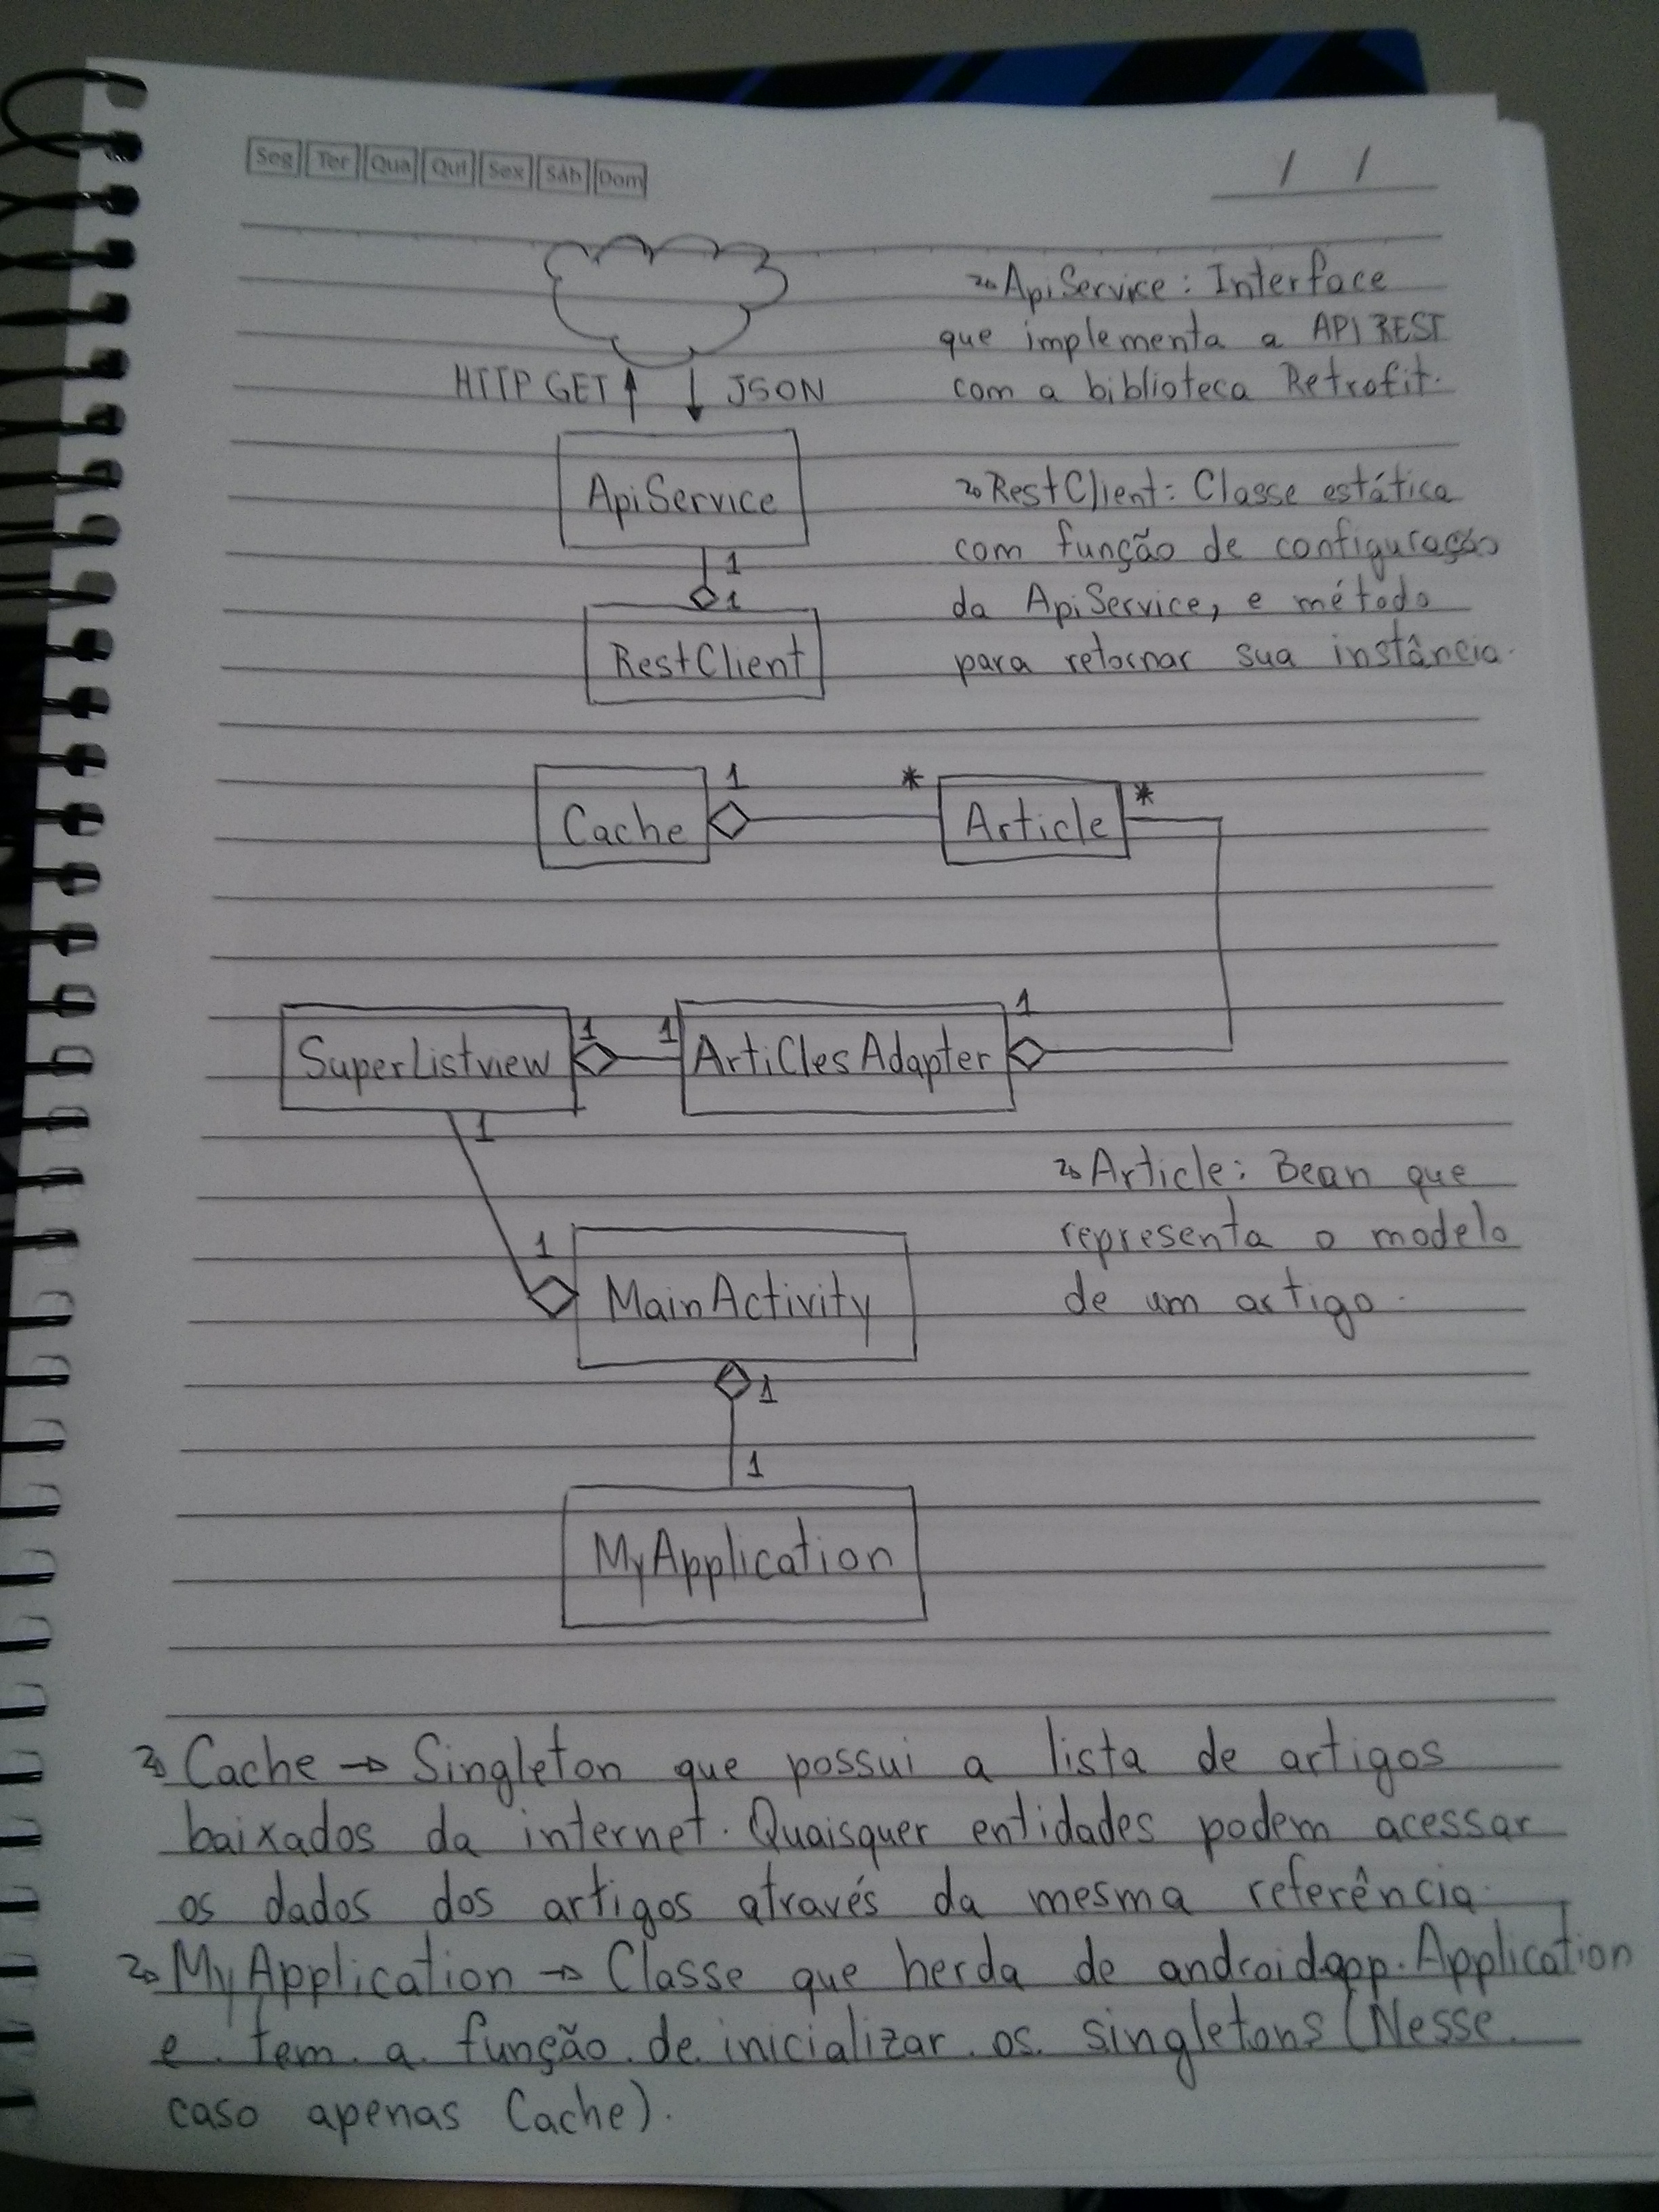 Seg Ter Qua Qui Sex Sáb Dom
/ /
HTTP GET JSON
ApiService
1
1
RestClient
ApiService: Interface
que implementa a API REST
com a biblioteca Retrofit.
RestClient: Classe estática
com função de configuração
da ApiService, e método
para retornar sua instância.
Cache 1 * Article *
SuperListview 1 1 ArtiClesAdapter 1
1
1
MainActivity
1
1
MyApplication
Article: Bean que
representa o modelo
de um artigo.
Cache → Singleton que possui a lista de artigos
baixados da internet. Quaisquer entidades podem acessar
os dados dos artigos através da mesma referência.
MyApplication → Classe que herda de android.app.Application
e tem a função de inicializar os singletons (Nesse
caso apenas Cache).